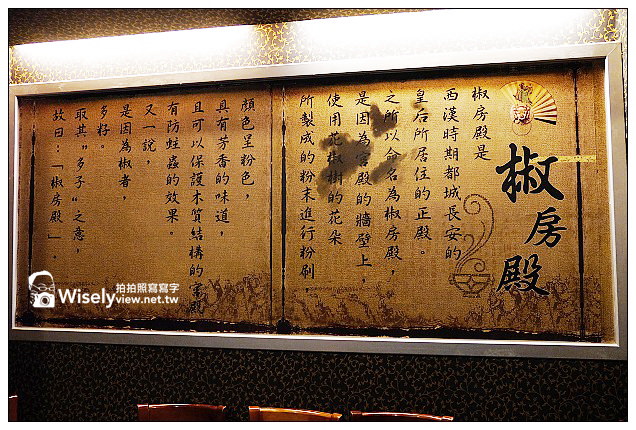 椒房殿
椒房殿是
西漢時期都城長安的
皇后所居住的正殿。
之所以命名為椒房殿，
是因為宮殿的牆壁上，
使用花椒樹的花朵
所製成的粉末進行粉刷，
顏色呈粉色，
具有芳香的味道，
且可以保護木質結構的宮殿
有防蛀蟲的效果。
又一說，
是因為椒者，
多籽。
取其"多子"之意，
故曰：「椒房殿」。
拍拍照寫寫字
Wiselyview.net.tw